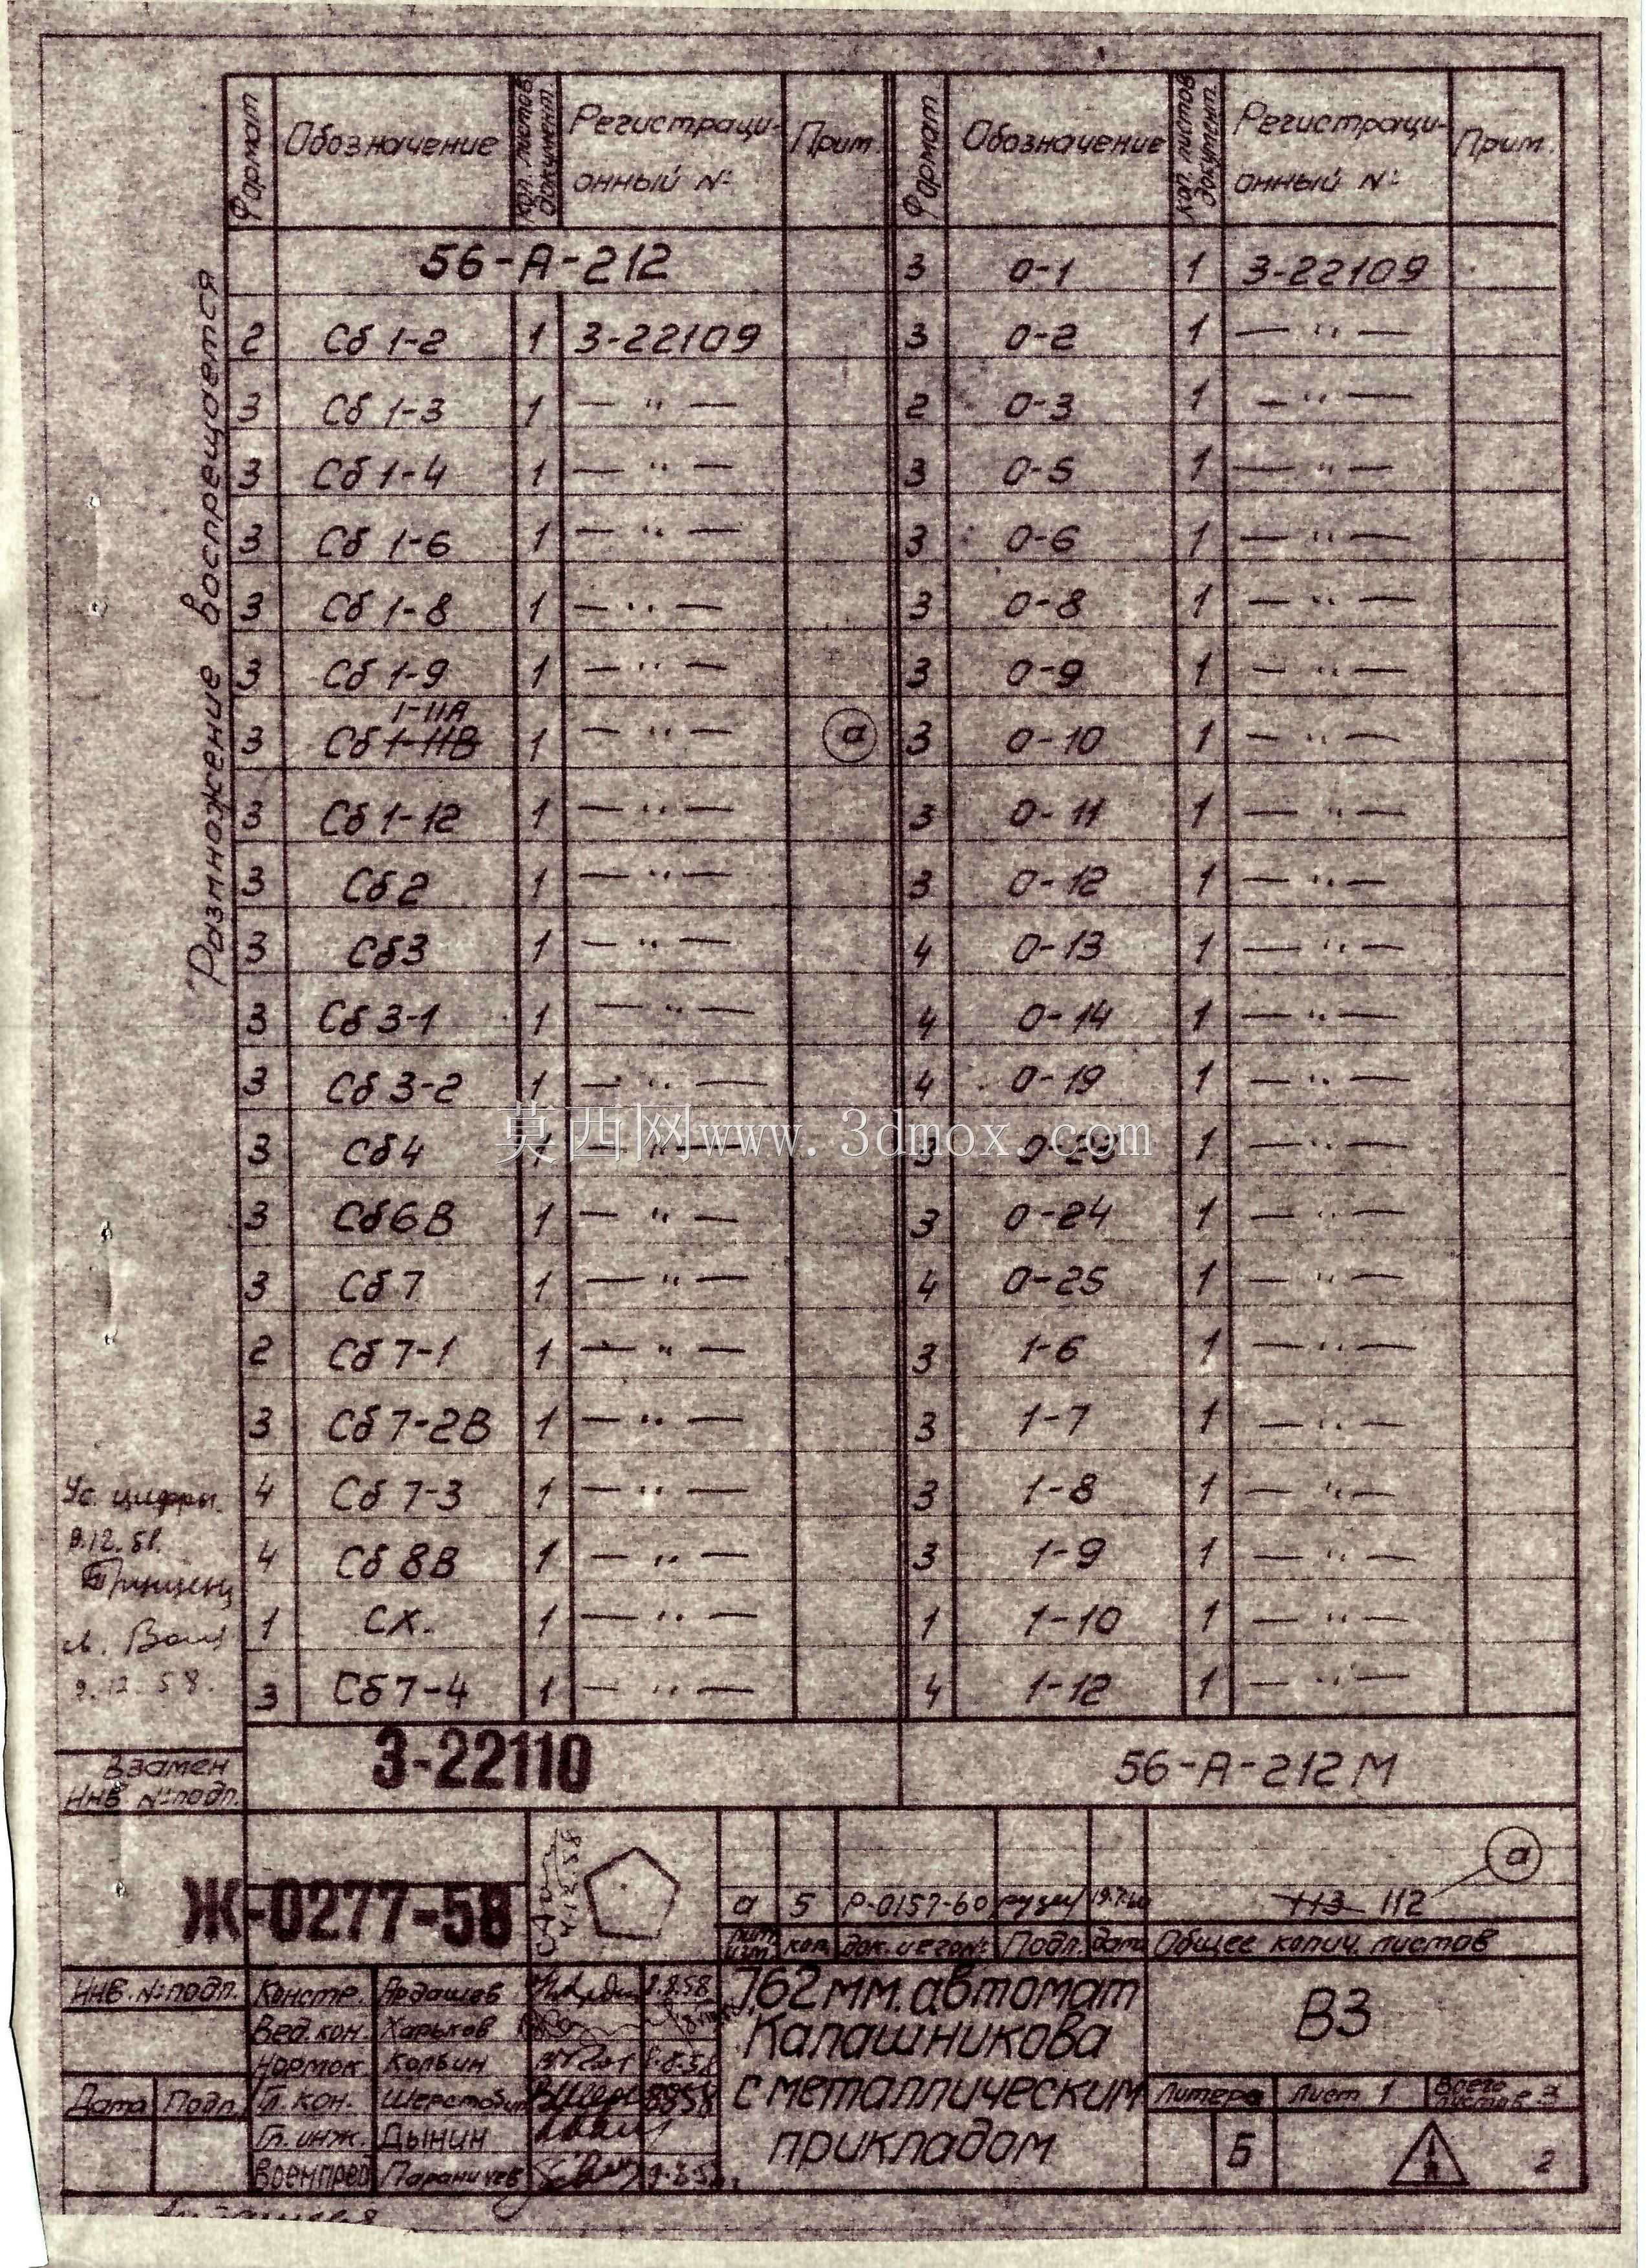 Размножение воспрещается
Формат Обозначение Кол. листов документ. Регистраци-онный № Прим. Формат Обозначение Кол. листов документ. Регистраци-онный № Прим.
56-А-212 3 0-1 1 3-22109
2 Сб 1-2 1 3-22109 3 0-2 1 — " —
3 Сб 1-3 1 — " — 2 0-3 1 — " —
3 Сб 1-4 1 — " — 3 0-5 1 — " —
3 Сб 1-6 1 — " — 3 0-6 1 — " —
3 Сб 1-8 1 — " — 3 0-8 1 — " —
3 Сб 1-9 1 — " — 3 0-9 1 — " —
1-11А
3 Сб 1-11В 1 — " — а 3 0-10 1 — " —
3 Сб 1-12 1 — " — 3 0-11 1 — " —
3 Сб 2 1 — " — 3 0-12 1 — " —
3 Сб 3 1 — " — 4 0-13 1 — " —
3 Сб 3-1 1 — " — 4 0-14 1 — " —
3 Сб 3-2 1 — " — 4 0-19 1 — " —
莫西网www.3dmox.com
3 Сб 4 1 — " — 3 1 — " —
3 Сб 6В 1 — " — 3 0-24 1 — " —
3 Сб 7 1 — " — 4 0-25 1 — " —
2 Сб 7-1 1 — " — 3 1-6 1 — " —
3 Сб 7-2В 1 — " — 3 1-7 1 — " —
4 Сб 7-3 1 — " — 3 1-8 1 — " —
4 Сб 8В 1 — " — 3 1-9 1 — " —
1 СХ. 1 — " — 1 1-10 1 — " —
3 Сб 7-4 1 — " — 4 1-12 1 — " —
цифры.
9.12.58.
9.12.58.
Взамен
Инв №подл. 3-22110 56-А-212М
Ж-0277-58
а 5 Р-0157-60 113 112 а
док. и его № Подп. дата Общее колич. листов
Инв. №подл. Констр. Ардашов 7,62 мм. автомат
Вед. кон. Харьков Калашникова ВЗ
Нормок Колбин с металлическим
Дата Подп. Гл. кон. прикладом Литера Лист 1 Всего листов 3
Гл. инж. Дынин Б 2
Военпред Параничев